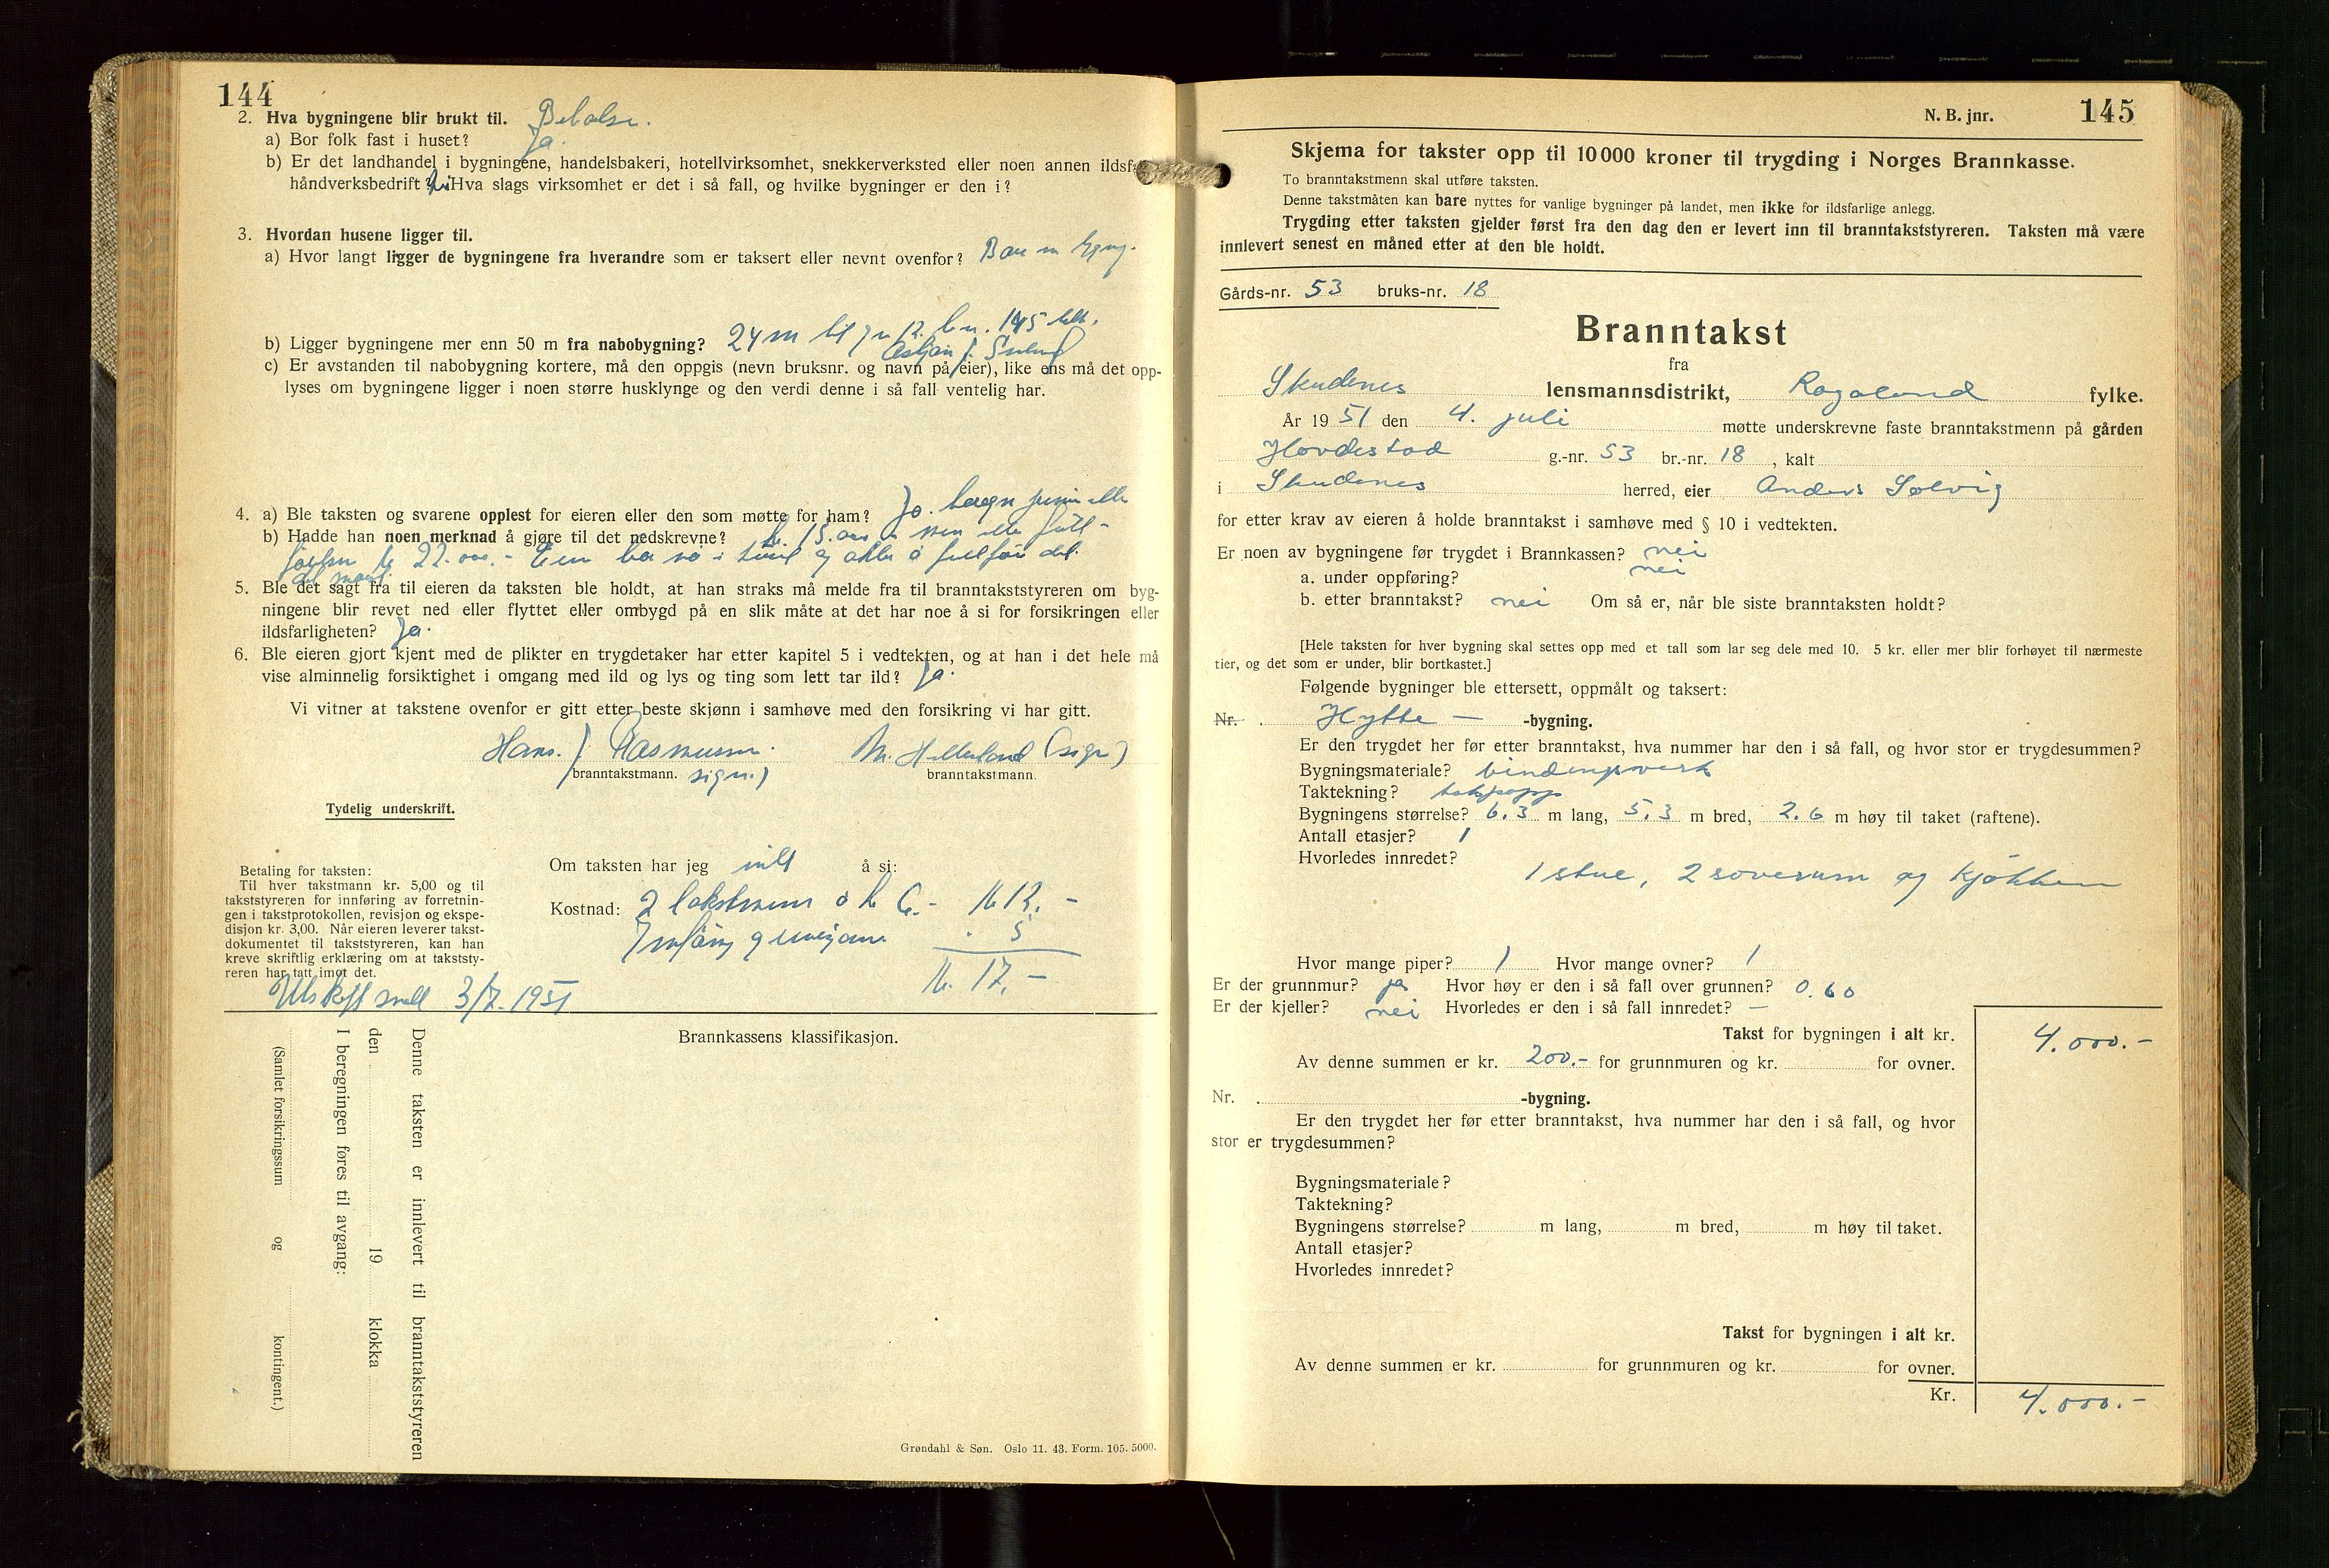 144
2. Hva bygningene blir brukt til. Bebolse.
a) Bor folk fast i huset? Ja.
b) Er det landhandel i bygningene, handelsbakeri, hotellvirksomhet, snekkerverksted eller noen annen ildsf
håndverksbedrift? Hva slags virksomhet er det i så fall, og hvilke bygninger er den i?
3. Hvordan husene ligger til.
a) Hvor langt ligger de bygningene fra hverandre som er taksert eller nevnt ovenfor? Bare en bygng.
b) Ligger bygningene mer enn 50 m fra nabobygning? 24 m til gn 12. bn. 145
c) Er avstanden til nabobygning kortere, må den oppgis (nevn bruksnr. og navn på eier), like ens må det opp-
lyses om bygningene ligger i noen større husklynge og den verdi denne i så fall ventelig har.
4. a) Ble taksten og svarene opplest for eieren eller den som møtte for ham? Ja.
b) Hadde han noen merknad å gjøre til det nedskrevne? kr. 15.000
kr 22.000.-
5. Ble det sagt fra til eieren da taksten ble holdt, at han straks må melde fra til branntakststyreren om byg-
ningene blir revet ned eller flyttet eller ombygd på en slik måte at det har noe å si for forsikringen eller
ildsfarligheten? Ja.
6. Ble eieren gjort kjent med de plikter en trygdetaker har etter kapitel 5 i vedtekten, og at han i det hele må
vise alminnelig forsiktighet i omgang med ild og lys og ting som lett tar ild? Ja.
Vi vitner at takstene ovenfor er gitt etter beste skjønn i samhøve med den forsikring vi har gitt.
Hans J. Rasmussen. M. Hellerland (sign)
branntakstmann. sign.) branntakstmann.
Tydelig underskrift.
Betaling for taksten:
Til hver takstmann kr. 5,00 og til
takststyreren for innføring av forretnin-
gen i takstprotokollen, revisjon og ekspe-
disjon kr. 3,00. Når eieren leverer takst-
dokumentet til takststyreren, kan han
kreve skriftlig erklæring om at takststy-
reren har tatt imot det.
Om taksten har jeg intt å si:
Kostnad: 2 takstmenn á kr 6.- kr 12.-
5
kr. 17.-
Utskrift 3/7. 1951
Brannkassens klassifikasjon.
Denne taksten er innlevert til branntakststyreren
den 19 klokka
I beregningen føres til avgang:
(Samlet forsikringssum og kontingent.)
Grøndahl & Søn. Oslo 11. 43. Form. 105. 5000.
N. B. jnr. 145
Skjema for takster opp til 10 000 kroner til trygding i Norges Brannkasse.
To branntakstmenn skal utføre taksten.
Denne takstmåten kan bare nyttes for vanlige bygninger på landet, men ikke for ildsfarlige anlegg.
Trygding etter taksten gjelder først fra den dag den er levert inn til branntakststyreren. Taksten må være
innlevert senest en måned etter at den ble holdt.
Gårds-nr. 53 bruks-nr. 18
Branntakst
fra
Skudenes lensmannsdistrikt, Rogaland fylke.
År 1951 den 4. juli møtte underskrevne faste branntakstmenn på gården
Hovdestad g.-nr. 53 br.-nr. 18, kalt
i Skudenes herred, eier Anders Solvig
for etter krav av eieren å holde branntakst i samhøve med § 10 i vedtekten.
Er noen av bygningene før trygdet i Brannkassen? nei
a. under oppføring? nei
b. etter branntakst? nei Om så er, når ble siste branntaksten holdt?
[Hele taksten for hver bygning skal settes opp med et tall som lar seg dele med 10. 5 kr. eller mer blir forhøyet til nærmeste
tier, og det som er under, blir bortkastet.]
Følgende bygninger ble ettersett, oppmålt og taksert:
Nr. Hytte - -bygning.
Er den trygdet her før etter branntakst, hva nummer har den i så fall, og hvor stor er trygdesummen?
Bygningsmateriale? bindingsverk
Taktekning? takpapp
Bygningens størrelse? 6.3 m lang, 5.3 m bred, 2.6 m høy til taket (raftene).
Antall etasjer? 1
Hvorledes innredet?
1 stue, 2 soverum og kjøkken
Hvor mange piper? 1 Hvor mange ovner? 1
Er der grunnmur? ja Hvor høy er den i så fall over grunnen? 0.60
Er der kjeller? nei Hvorledes er den i så fall innredet? -
Takst for bygningen i alt kr. 4.000.-
Av denne summen er kr. 200.- for grunnmuren og kr. for ovner.
Nr. -bygning.
Er den trygdet her før etter branntakst, hva nummer har den i så fall, og hvor
stor er trygdesummen?
Bygningsmateriale?
Taktekning?
Bygningens størrelse? m lang, m bred, m høy til taket.
Antall etasjer?
Hvorledes innredet?
Takst for bygningen i alt kr.
Av denne summen er kr. for grunnmuren og kr. for ovner.
Kr. 4.000.-